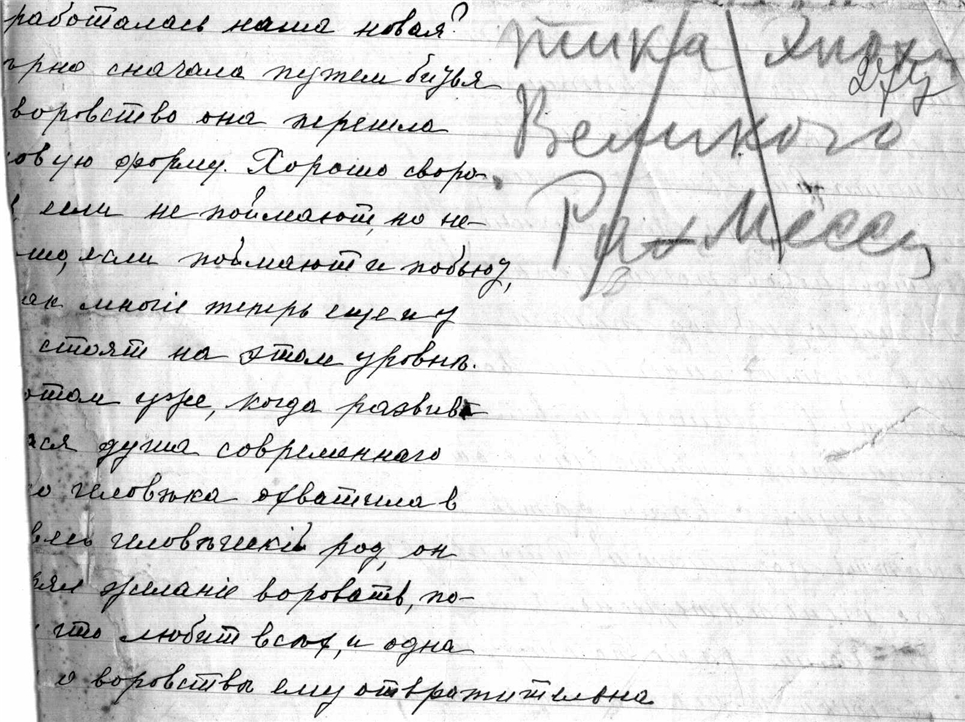 работалась наша новая?
ѣрно сначала путем битья
воровство она перешла
овую форму. Хорошо своро-
если не поймают, но не-
шо, если поймают и побьют,
ак многіе теперь еще и у
стоят на этом уровнѣ.
отом уже, когда развив
ся душа современнаго
о человѣка охватила в
весь человѣческій род, он
желаніе воровать, по-
что любит всѣх, и одна
о воровствѣ ему отвратительна
тика Эпохи
274
Великого
Рамзеса